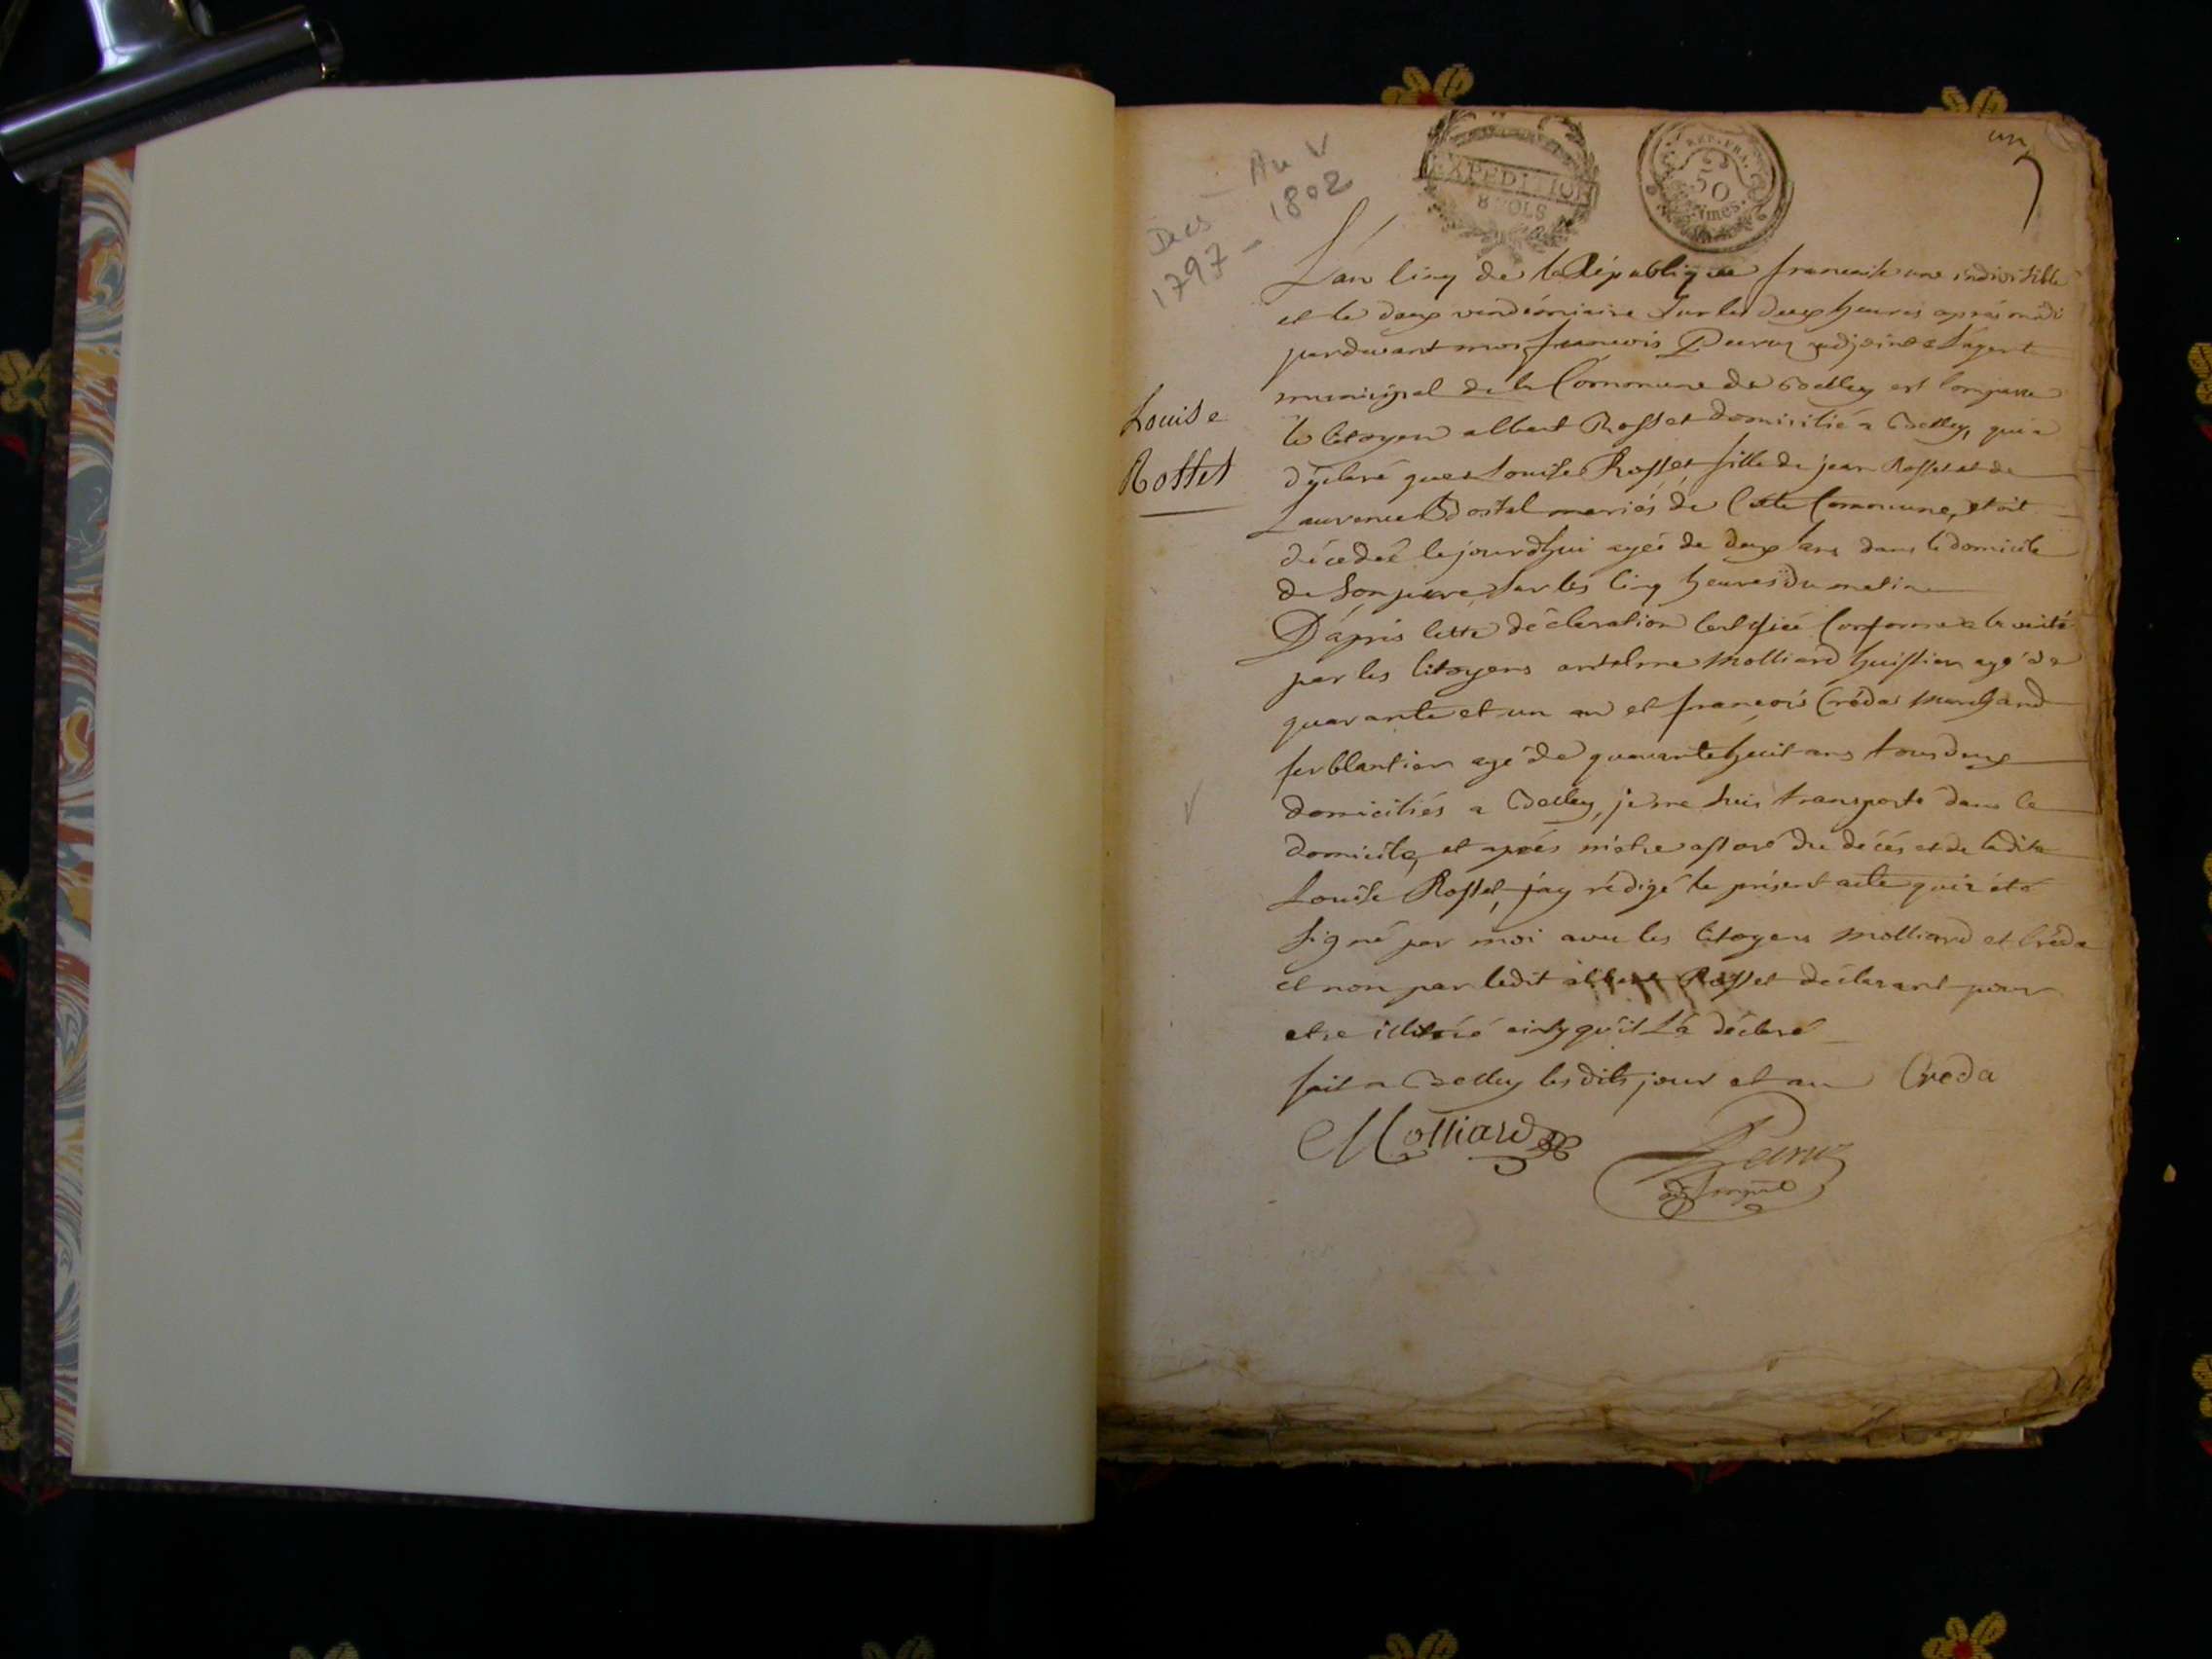 un
An V
Decs
1797 - 1802
EXPEDITION
8 SOLS
REP. FRA.
50
Louise
Rosset
L'an cinq de la République francaise une indivisible
et le deux vendémiaire sur les deux heures aprés midi
pardevant moi francois adjoint a l'agent
municipal de la Commune de Belley est comparu
le citoyen albert Rosset domicilié a Belley, qui a
déclaré que Louise Rosset, fille de jean Rosset et de
Laurence mariés de cette Commune, etoit
décedée le jourdhui agée de deux ans dans le domicile
de son pere sur les cinq heures du matin
D'apris cette déclaration certifiée conforme a la verité
par les citoyens antelme Molliard huissier agé de
quarante et un an et francois Créda marchand
ferblantier agé de quarante huit ans tous deux
domiciliés a Belley, je me suis transporté dans le
domicile, et aprés m'etre assuré du décés et de ladite
Louise Rosset, j'ay rédigé le présent acte qui a été
signé par moi avec les citoyens Molliard et Créda
et non par ledit albert Rosset déclarant pour
etre illitéré ainsy qu'il l'a déclaré
fait a Belley les dits jour et an Creda
Molliard